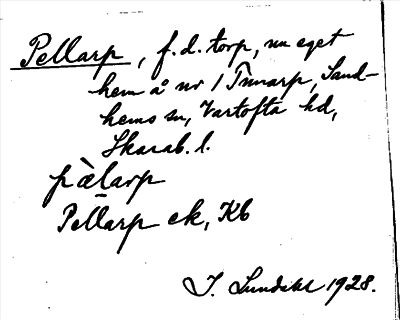 Pellarp, f.d. torp, nu eget
hem å nr 1 Tunarp, Sand-
hems sn, Vartofta hd,
Skarab. l.
pə̀larp
Pellarp ek, Kb
J. Lundahl 1928.